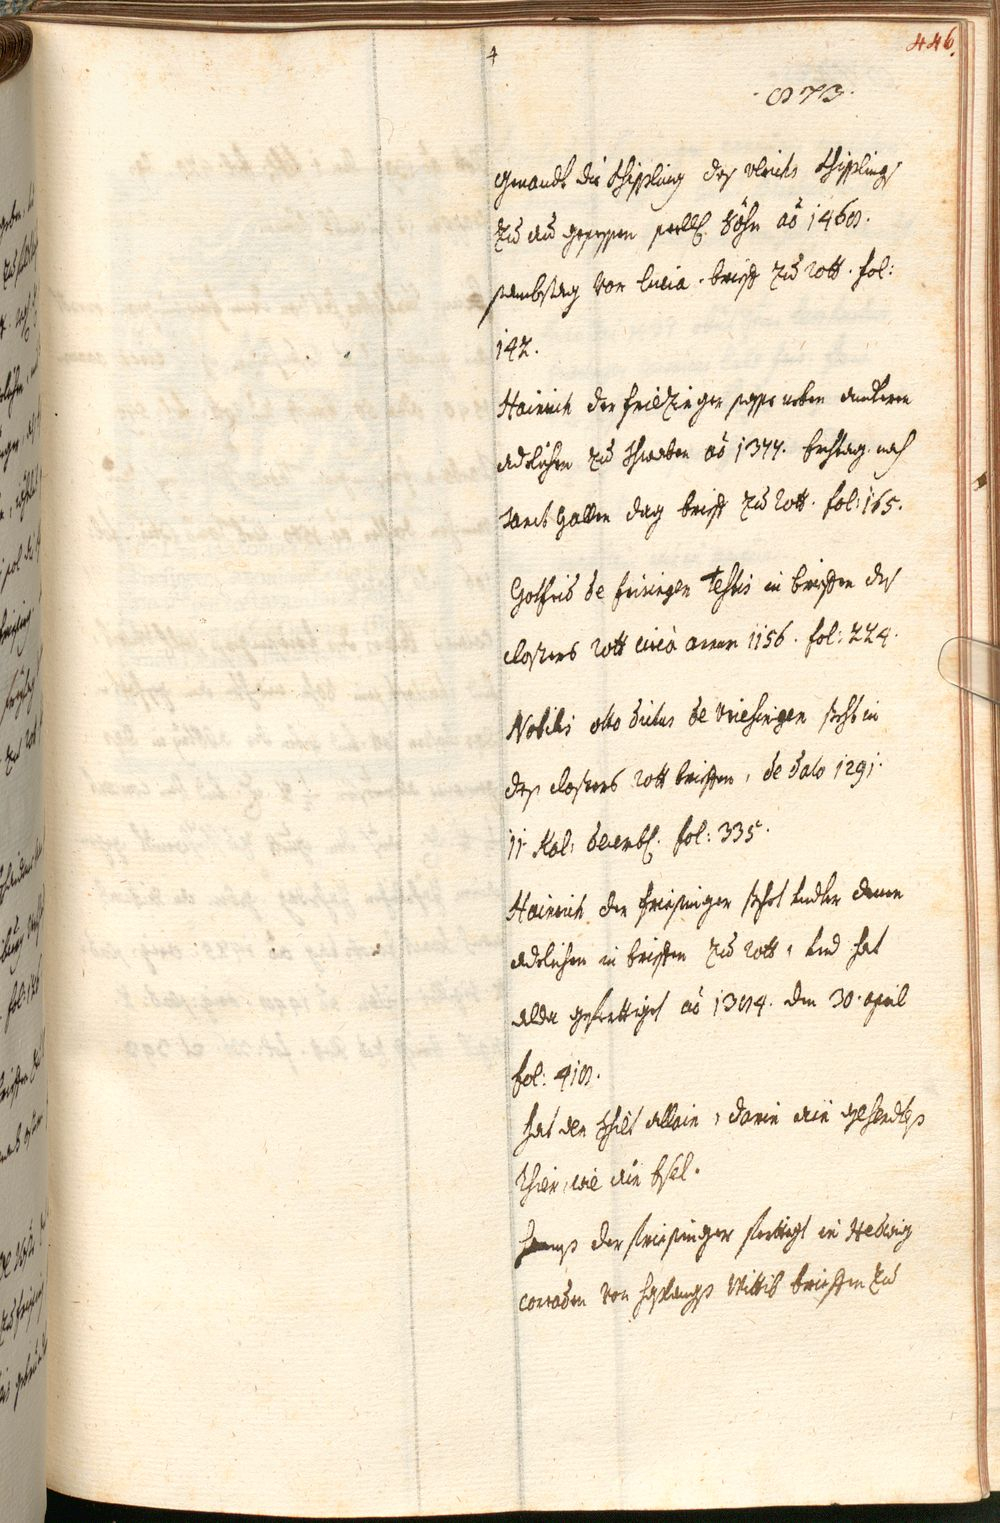 446.
873.
genandt die Schilling des Ulrichs Schillings
zu au gesessen Söhn aõ 1468.
sambstag vor Lucia. brieff zu Rott. fol:
142.
Hainrich der Friezinger neben anderen
adelichen zu Schwaben aõ 1377. Erchtag nach
sanct Gallen dag brieff zu Rott. fol: 165.
Gotfrid de Frisingen testis in brieffen des
closters Rott circa annum 1156. fol: 224.
Nobilis otto dictus de Vriesingen steht in
des closters Rott brieffen, de dato 1291.
11 Kal: decembr. fol: 335.
Hainrich der Friesinger stehet under denen
adelichen in brieffen zu Rott, und hat
alda gesertiget aõ 1384. den 30. april
fol: 418.
hat den Schilt allain, darin ain
thier, wie ain Esel.
der Friesinger fertigt in Hedwig
Conraden von Wittib brieffen zu